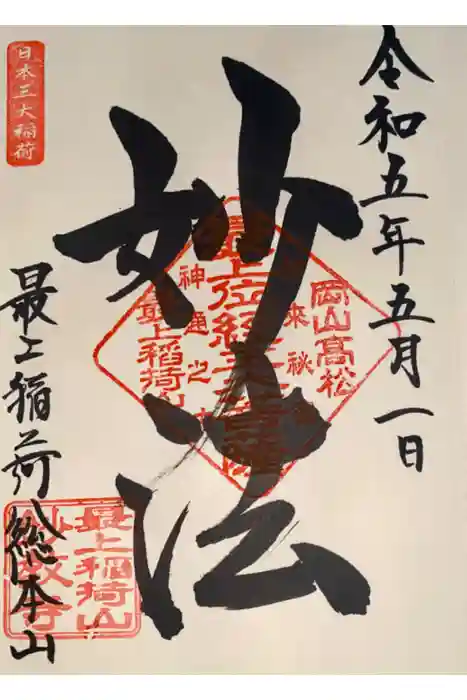 令和五年五月一日
日本三大稲荷
妙法
岡山高松
最上位経王大菩薩
最上稲荷山
最上稲荷総本山
最上稲荷山
妙教寺